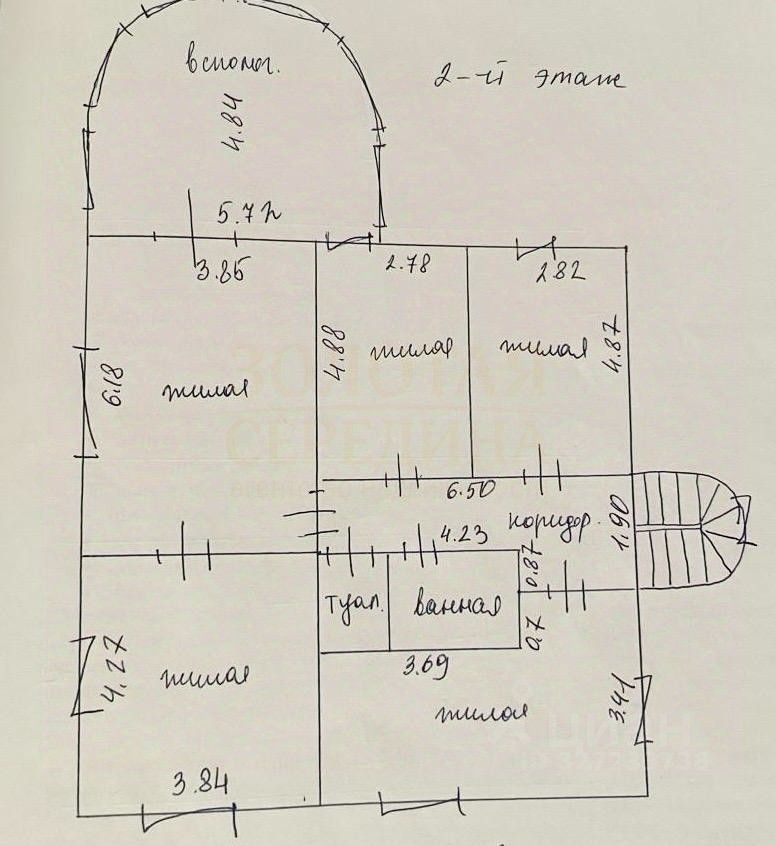 вспомог.
2-й этаж
4.84
5.72
3.85
2.78
2.82
4.88
4.87
6.18
жилая
жилая
жилая
ЗОЛОТАЯ
СЕРЕДИНА
6.50
коридор.
1.90
4.23
0.87
туал.
ванная
0.7
3.69
4.27
жилая
жилая
3.41
3.84